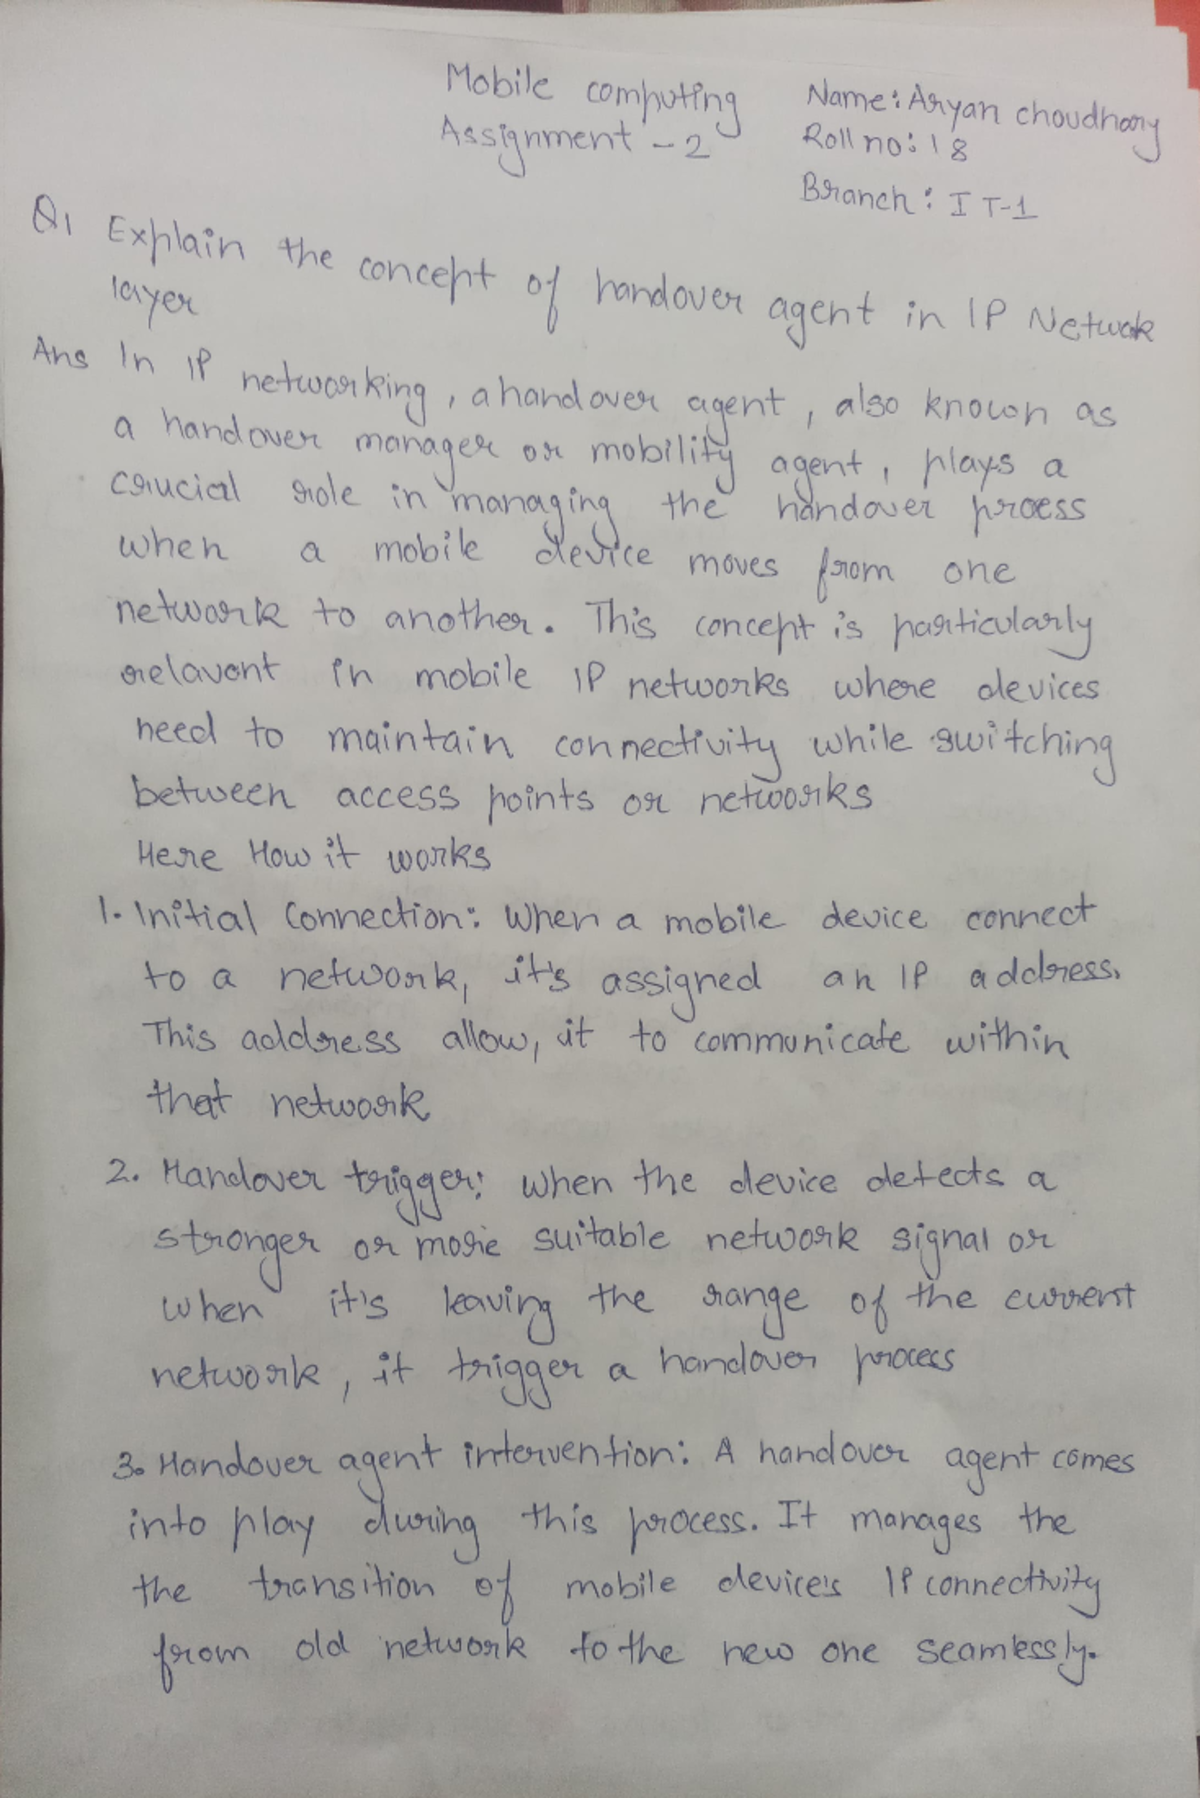 Mobile computing
Assignment - 2
Name: Aryan choudhary
Roll no: 18
Branch: IT-1
Q1 Explain the concept of handover agent in IP Netwok
layer
Ans In IP networking, a handover agent, also known as
a handover manager or mobility agent, plays a
crucial role in managing the handover proess
when a mobile device moves from one
network to another. This concept is particularly
relavent in mobile IP networks where devices
need to maintain connectivity while switching
between access points or networks
Here How it works
1. Initial Connection: When a mobile device connect
to a network, it's assigned an IP address.
This address allow, it to communicate within
that network
2. Handover trigger: when the device detects a
stronger or more suitable network signal or
when it's leaving the range of the current
network, it trigger a handover process
3. Handover agent intervention: A handover agent comes
into play during this process. It manages the
the transition of mobile device's IP connectivity
from old network to the new one seamlessly.